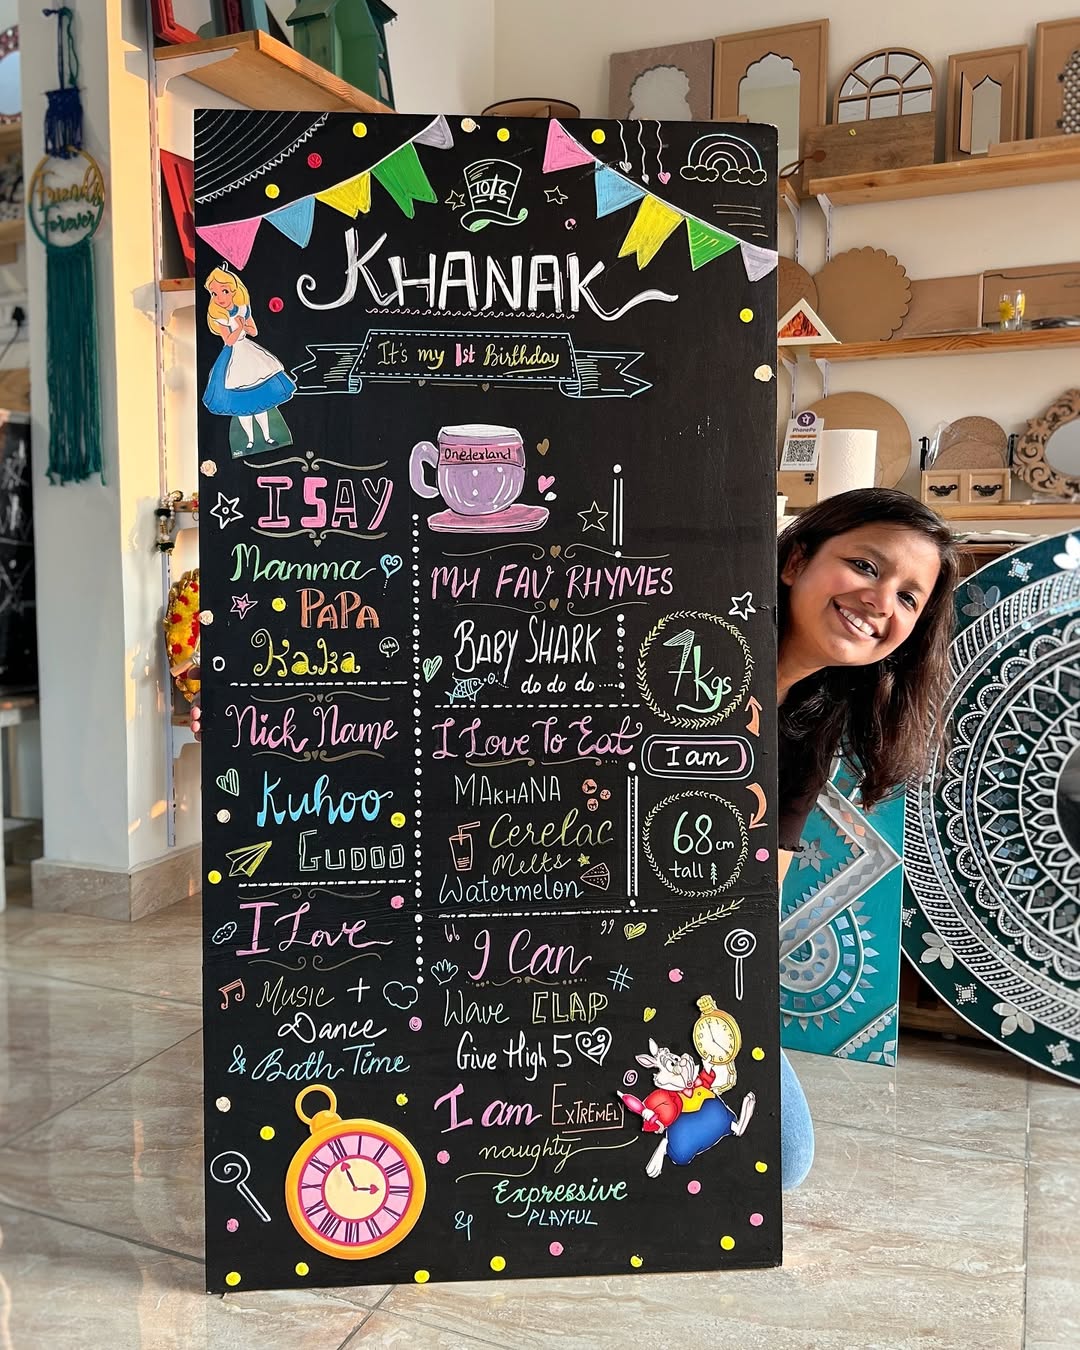 Friends
Forever
10/6
KHANAK
It's my 1st Birthday
Onederland
I SAY
Mamma
PAPA
Kaka
Haha
Nick Name
Kuhoo
GUDOO
I Love
Music +
Dance
& Bath Time
MY FAV RHYMES
BABY SHARK
do do do .....
I Love To Eat
MAKHANA
Cerelac
Melts
Watermelon
7kgs
I am
68 cm
tall
" I Can "
#
Wave CLAP
Give High 5
I am EXTREMELY
naughty
Expressive
& PLAYFUL
PhonePe